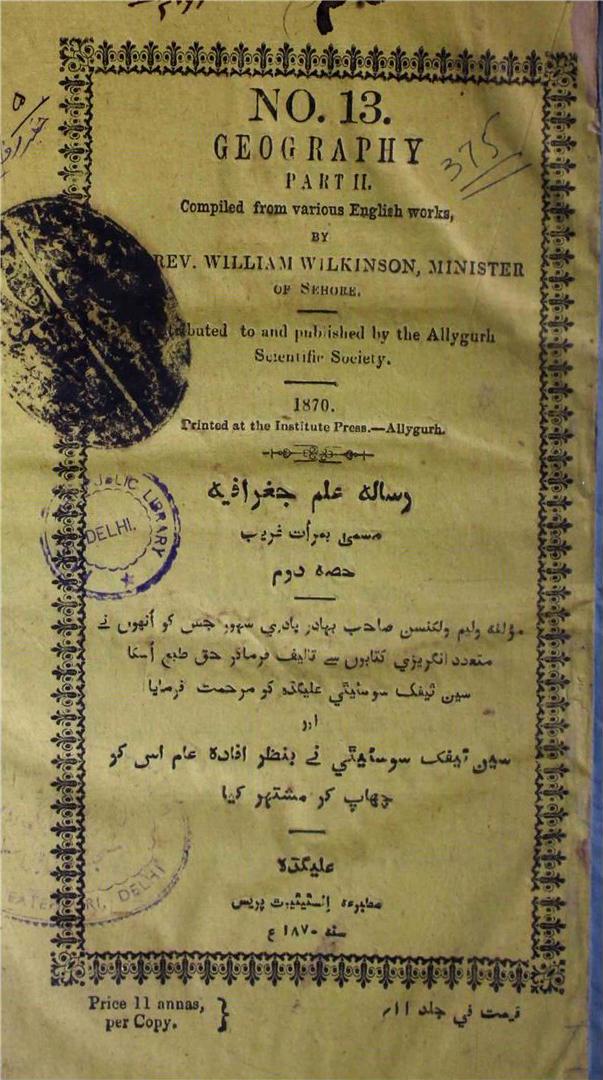 NO. 13.
GEOGRAPHY
375
PART II.
Compiled from various English works,
BY
REV. WILLIAM WILKINSON, MINISTER
OF SEHORE.
tributed to and published by the Allygurh
Scientific Society.
1870.
Printed at the Institute Press.—Allygurh.
رساله علم جغرافيه
LIC LIBRARY
DELHI.
مسمی بمرات غریب
حصه دوم
مؤلفه وليم ولكنسن صاحب بهادر پادري سہور جس كو اُنهوں نے
متعدد انگريزي كتابوں سے تاليف فرماكر حق طبع اُسكا
سين ٹيفک سوسئيٹي عليگڈہ كو مرحمت فرمايا
اور
سين ٹيفک سوسئيٹي نے بنظر افادہ عام اس كو
چهاپ كر مشتهر كيا
عليگڈہ
مطبوعه انسٹيٹيوٹ پريس
سنه ۱۸۷۰ ع
RI, DELHI
Price 11 annas,
per Copy.
قيمت في جلد ۱۱/